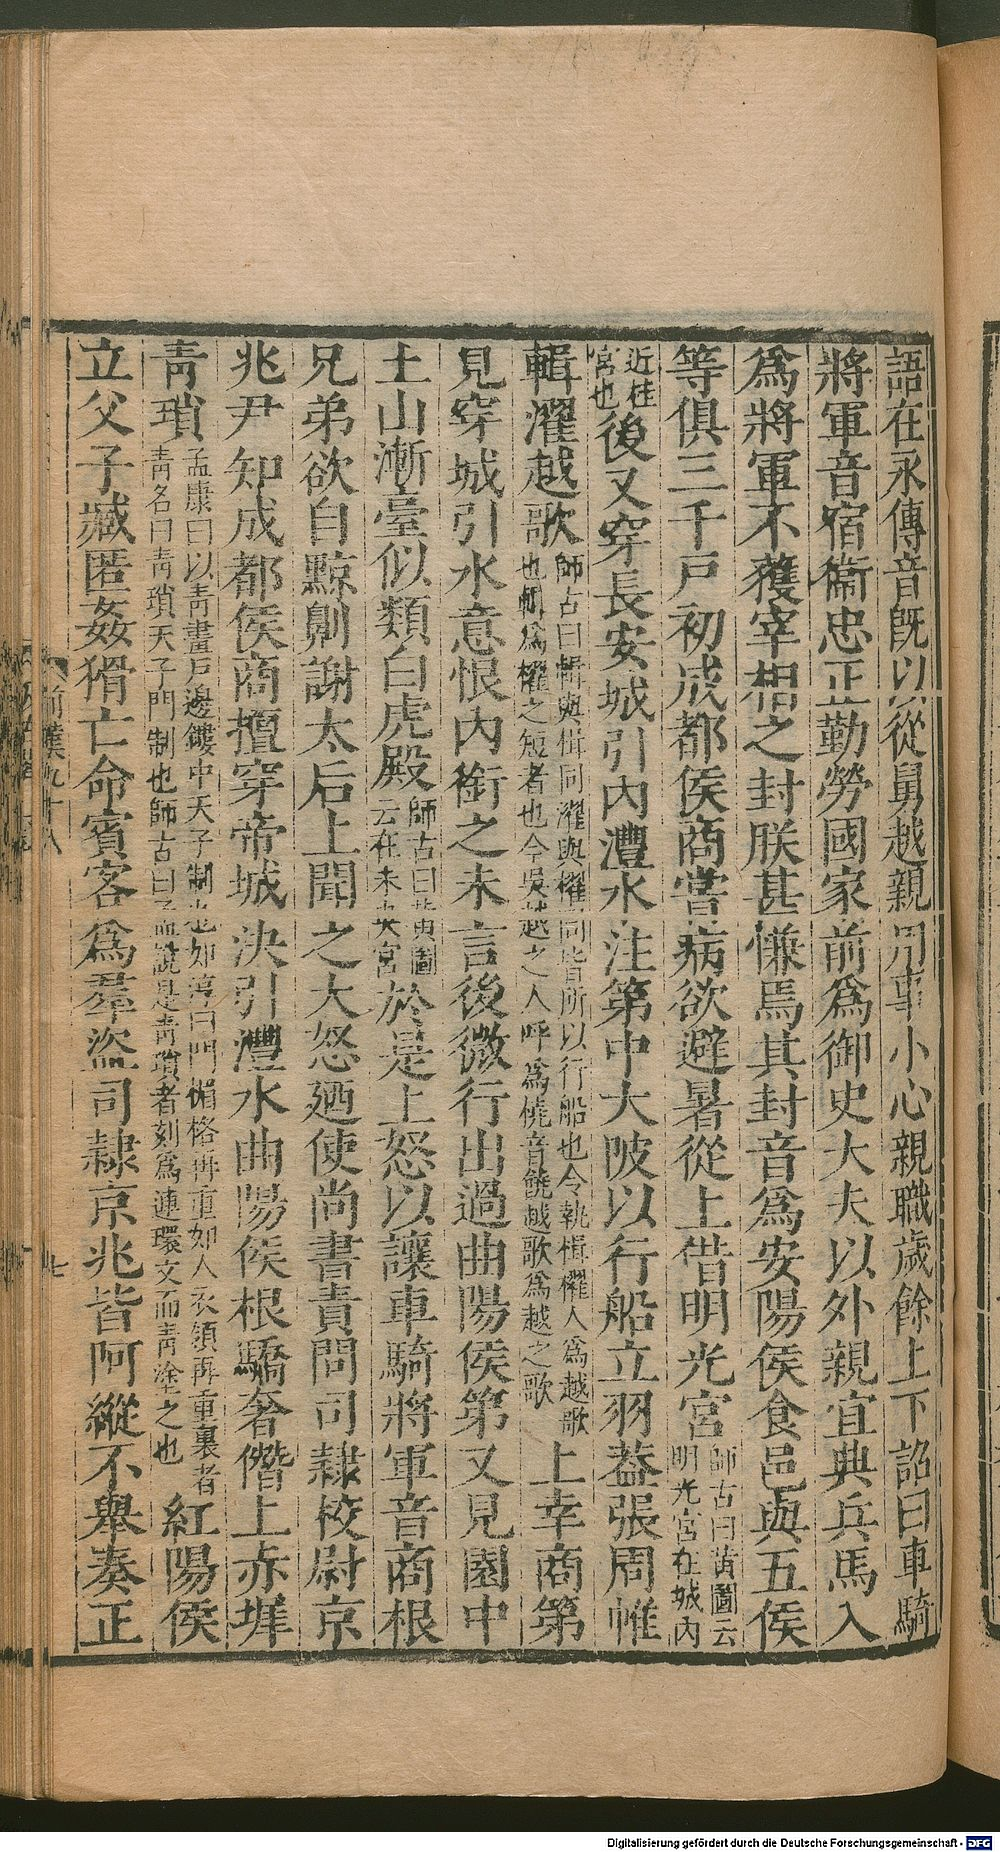 語在永傳音旣以從舅越親用事小心親職歲餘上下詔曰車騎
將軍音宿衞忠正勤勞國家前爲御史大夫以外親宜典兵馬入
爲將軍不獲宰相之封朕甚慊焉其封音爲安陽侯食邑與五侯
等俱三千戶初成都侯商嘗病欲避暑從上借明光宮師古曰黃圖云明光宮在城內
近桂宮也後又穿長安城引內灃水注第中大陂以行船立羽葢張周帷
輯濯越歌師古曰輯與楫同濯與櫂同皆所以行船也令執楫櫂人爲越歌也楫爲櫂之短者也今吳越之人呼爲橈音饒越歌爲越之歌上幸商第
見穿城引水意恨內銜之未言後微行出過曲陽侯第又見園中
土山漸臺似類白虎殿師古曰黃圖云在未央宮於是上怒以讓車騎將軍音商根
兄弟欲自黥劓謝太后上聞之大怒廼使尚書責問司隸校尉京
兆尹知成都侯商擅穿帝城決引灃水曲陽侯根驕奢僭上赤墀
靑瑣孟康曰以靑畫戶邊鏤中天子制也如淳曰門楣格再重如人衣領再重裏者靑名曰靑瑣天子門制也師古曰孟說是靑瑣者刻爲連環文而靑塗之也紅陽侯
立父子臧匿姦猾亡命賓客爲羣盜司隸京兆皆阿縱不舉奏正
前漢九十八
七
Digitalisierung gefördert durch die Deutsche Forschungsgemeinschaft - DFG